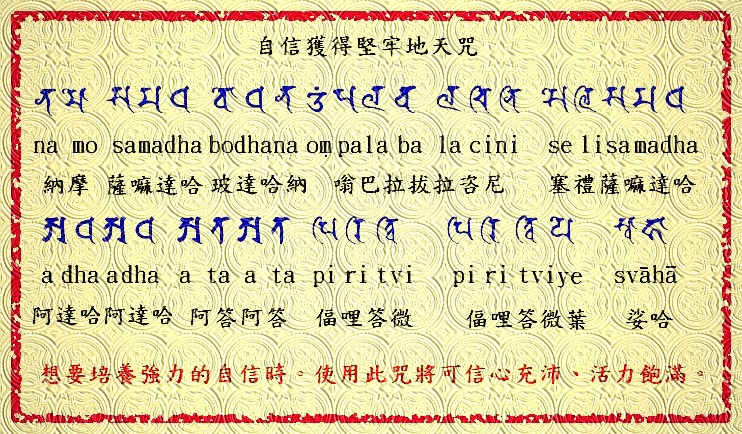 自信獲得堅牢地天咒
na mo samadha bodhana oṃ pala ba la cini se lisamadha
納摩 薩嘛達哈 玻達哈納 嗡巴拉拔拉咨尼 塞禮薩嘛達哈
a dha adha a ta a ta pi ri tvi pi ri tviye svāhā
阿達哈阿達哈 阿答阿答 偪哩答微 偪哩答微葉 娑哈
想要培養強力的自信時。使用此咒將可信心充沛、活力飽滿。